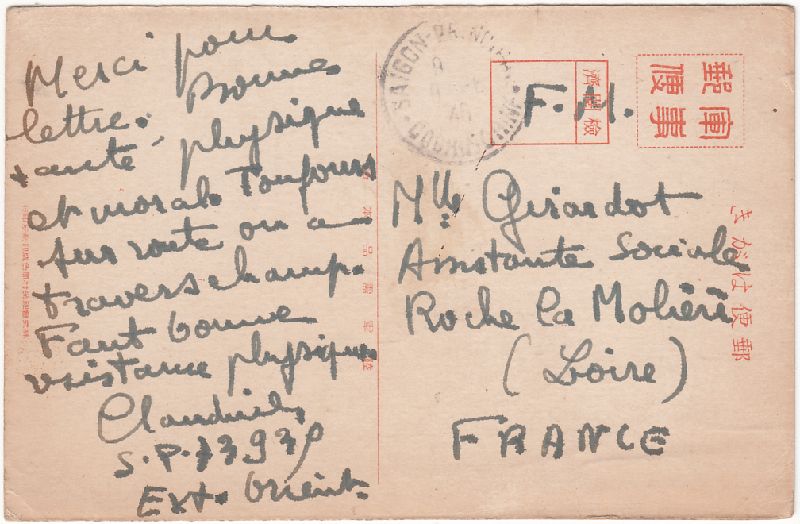 Merci pour
bonne
lettre.
santé physique
et moral. Toujours
sur route ou à
travers champ.
Faut bonne
résistance physique
S.P. 73939
Ext. Orient.
SAIGON-
COCHINCHINE
F.M.
濟閲檢
軍事
郵便
きがは便郵
Mlle Girardot
Assistante Sociale
Roche la Molière
(Loire)
FRANCE